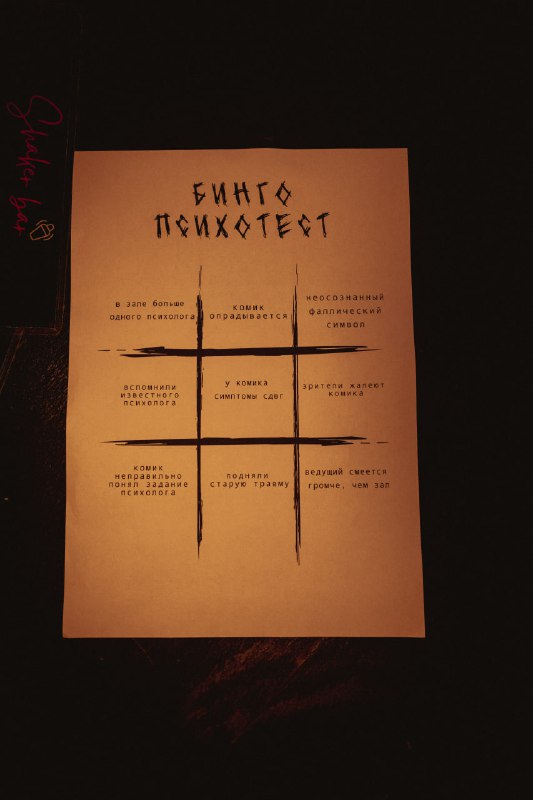 Shaker bar
БИНГО
ПСИХОТЕСТ
в зале больше
одного психолога
комик
опрадывается
неосознанный
фаллический
символ
вспомнили
известного
психолога
у комика
симптомы сдвг
зрители жалеют
комика
комик
неправильно
понял задание
психолога
подняли
старую травму
ведущий смеется
громче, чем зал